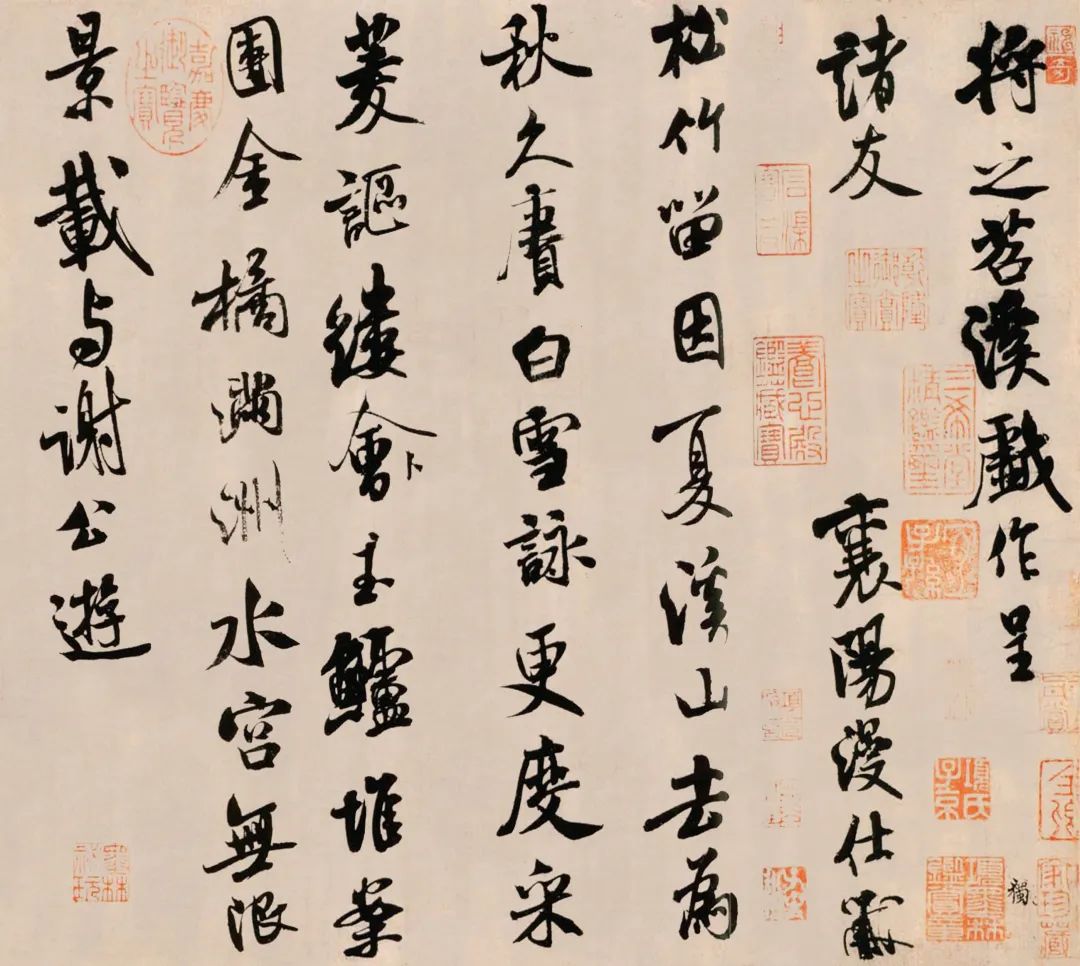 將之苕溪戲作呈
諸友
襄陽漫仕黻
松竹留因夏溪山去為
秋久賡白雪詠更度采
菱謳縷會玉鱸堆案
團金橘滿洲水宮無限
景載与謝公遊
獨
石渠寶笈
養心殿鑑藏寶
三希堂精鑑璽
宜子孫
項氏子京
項墨林鑑賞章
嘉慶御覽之寶
墨林秘玩